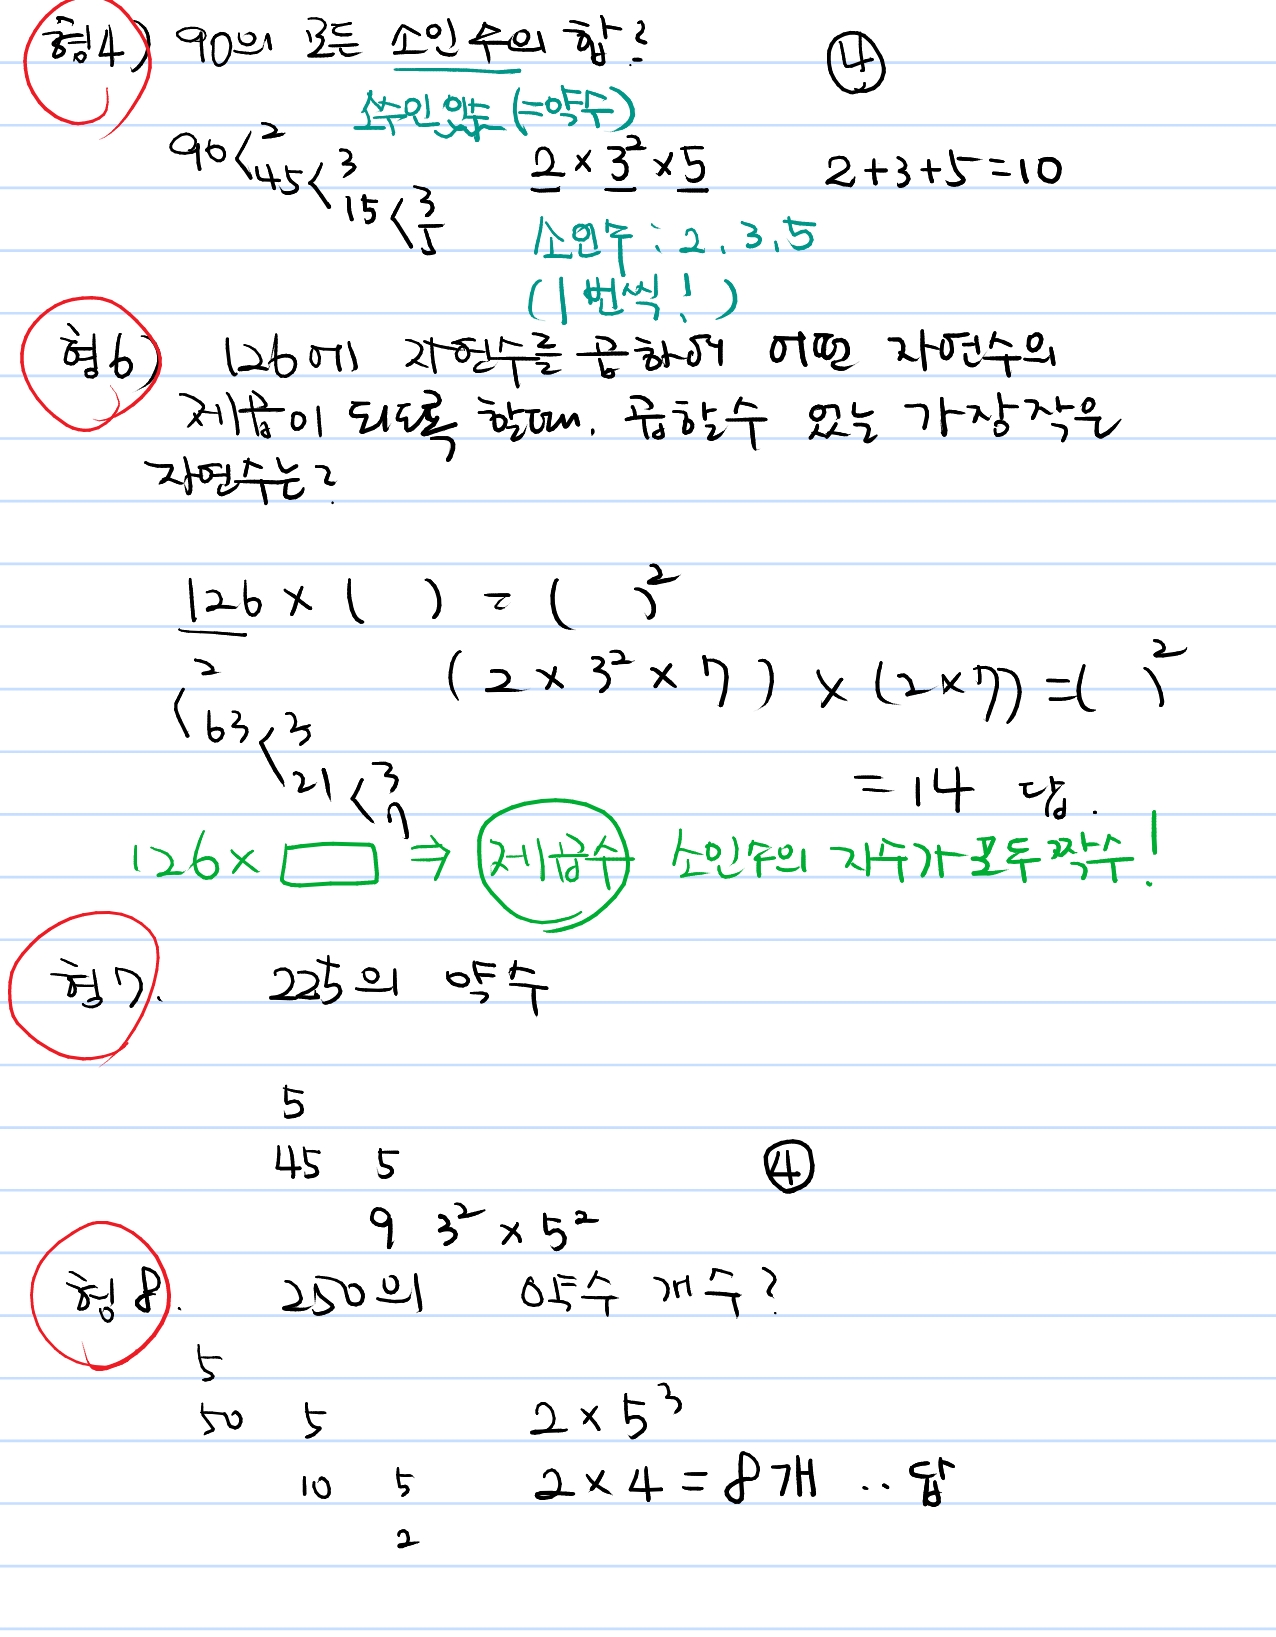 형4) 90의 모든 소인수의 합? ④
소수인 인수 (=약수)
90 < 2 45 < 3 15 < 3 5 2 × 3² × 5 2+3+5=10
소인수 : 2, 3, 5
(1번씩!)
형6) 126에 자연수를 곱하여 어떤 자연수의
제곱이 되도록 할때, 곱할수 있는 가장작은
자연수는?
126 × ( ) = ( )²
2 ( 2 × 3² × 7 ) × (2×7) = ( )²
< 63 < 3
21 < 3 7 = 14 답.
126 × □ ⇒ 제곱수 소인수의 지수가 모두 짝수!
형7. 225의 약수
5
45 5 ④
9 3² × 5²
형8. 250의 약수 개수?
5
50 5 2 × 5³
10 5 2 × 4 = 8개 .. 답
2